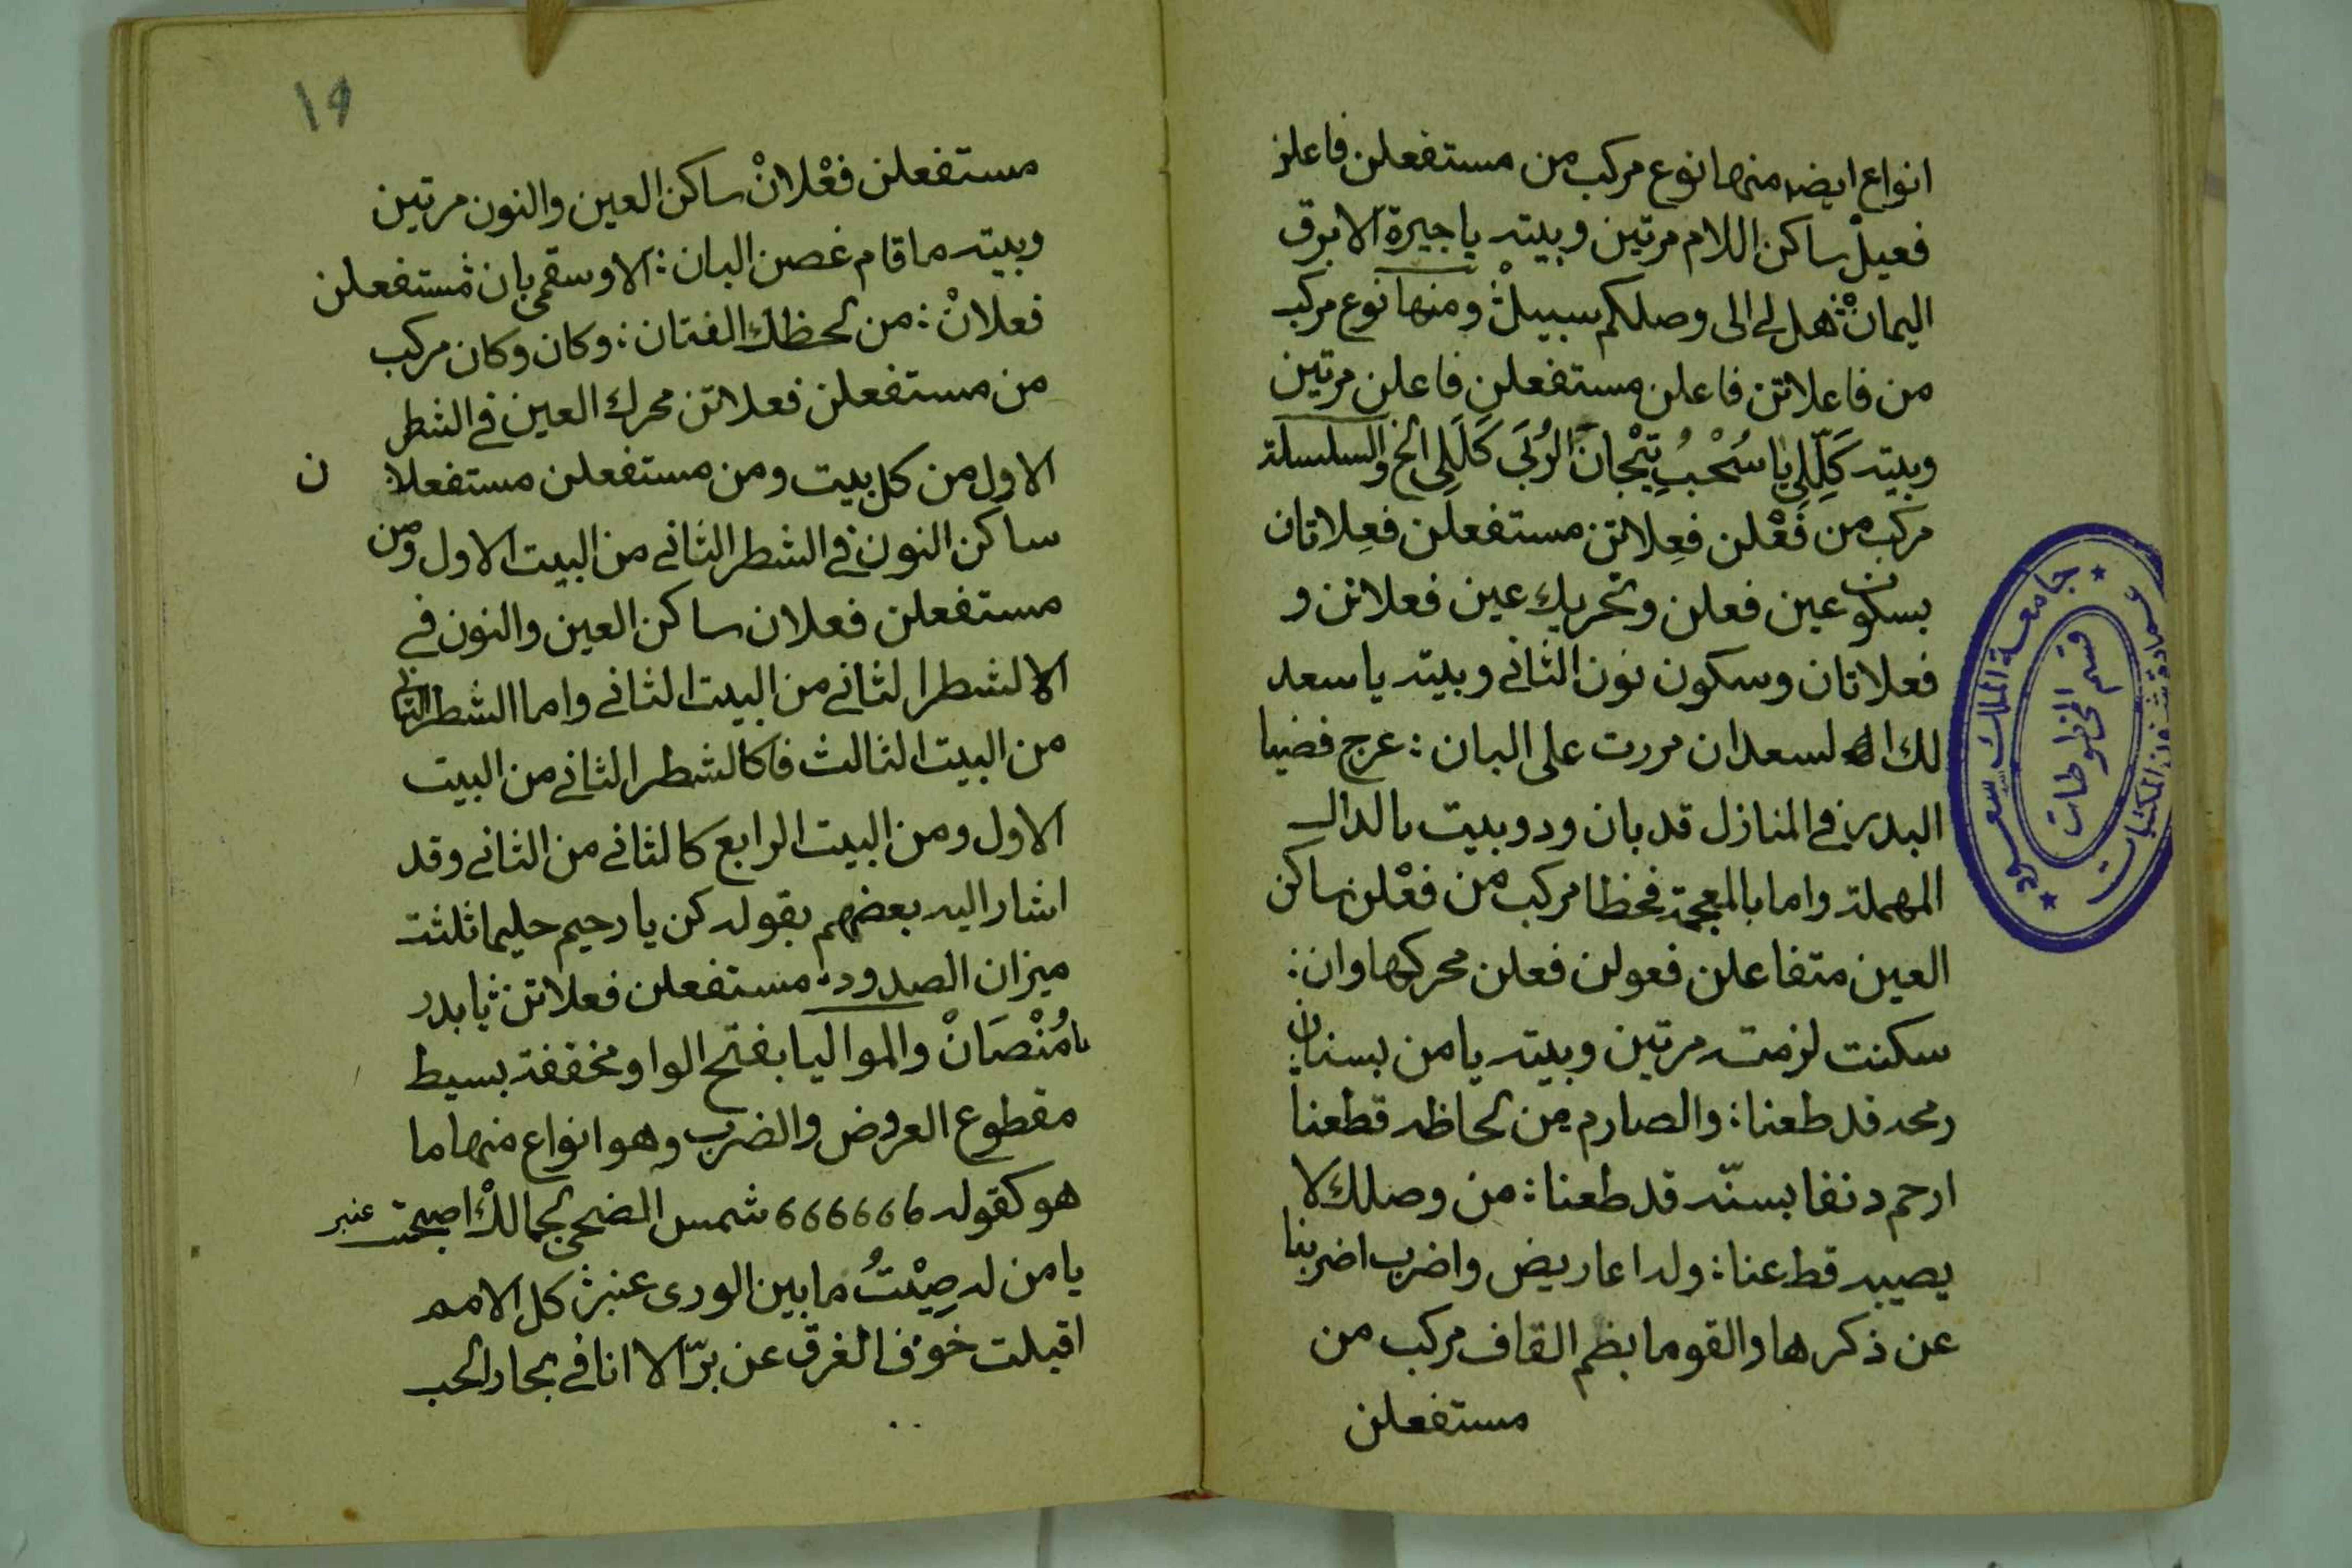 انواع ايضا منها نوع مركب من مستفعلن فاعلن
فعيلْ ساكن اللام مرتين وبيته يا جيرة الابرق
اليمانْ هل لي الى وصلكم سبيلْ ومنها نوع مركب
من فاعلاتن فاعلن مستفعلن فاعلن مرتين
وبيته كَلِّلِي يا سُحْبُ تِيْجانَ الرُبَى كَلِّلِي الخ والسلسلة
مركب من فَعْلن فعِلاتن مستفعلن فعِلاتان
بسكون عين فعلن وتحريك عين فعلاتن و
فعلاتان وسكون نون الثاني وبيته يا سعد
لك السعد ان مررت على البان : عرج فضيا
البدر في المنازل قد بان ودوبيت بالدال
المهملة واما بالمعجمة فخطا مركب من فعْلن ساكن
العين متفاعلن فعولن فعلن محركها وان :
سكنت لزمت مرتين وبيته يا من بسنان
رمحه قد طعنا : والصارم من لحاظه قطعنا
ارحم دنفا بسنّه قد طعنا : من وصلك لا
يصيبه قط عنا : وله اعاريض واضرب اضربنا
عن ذكرها والقوما بضم القاف مركب من
مستفعلن
١٩
مستفعلن فعْلانْ ساكن العين والنون مرتين
وبيته ما قام غصن البان : الا وسقمي بان مستفعلن
فعلانْ : من لحظك الفتان : وكان وكان مركب
من مستفعلن فعلاتن محرك العين في الشطر
الاول من كل بيت ومن مستفعلن مستفعلا ن
ساكن النون في الشطر الثاني من البيت الاول ومن
مستفعلن فعلان ساكن العين والنون في
الا لشطر الثاني من البيت الثاني واما الشطر الثاني
من البيت الثالث فاكالشطر الثاني من البيت
الاول ومن البيت الرابع كالثاني من الثاني وقد
اشار اليه بعضهم بقوله كن يا رحيم حليما ثلثت
ميزان الصدود : مستفعلن فعلاتن يا بدر
يا مُنْصَانْ والمواليا بفتح الواو مخففة بسيط
مقطوع العروض والضرب وهو انواع منها ما
هو كقوله 666666 شمس الضحى لجمالكْ اصبحت عنبر
يا من له صِيْتُ ما بين الورى عنبر كل الامم
اقبلت خوف الغرق عن برّ الا انا في بحار الحب
جامعة الملك سعود
عمادة شئون المكتبات
قسم المخطوطات